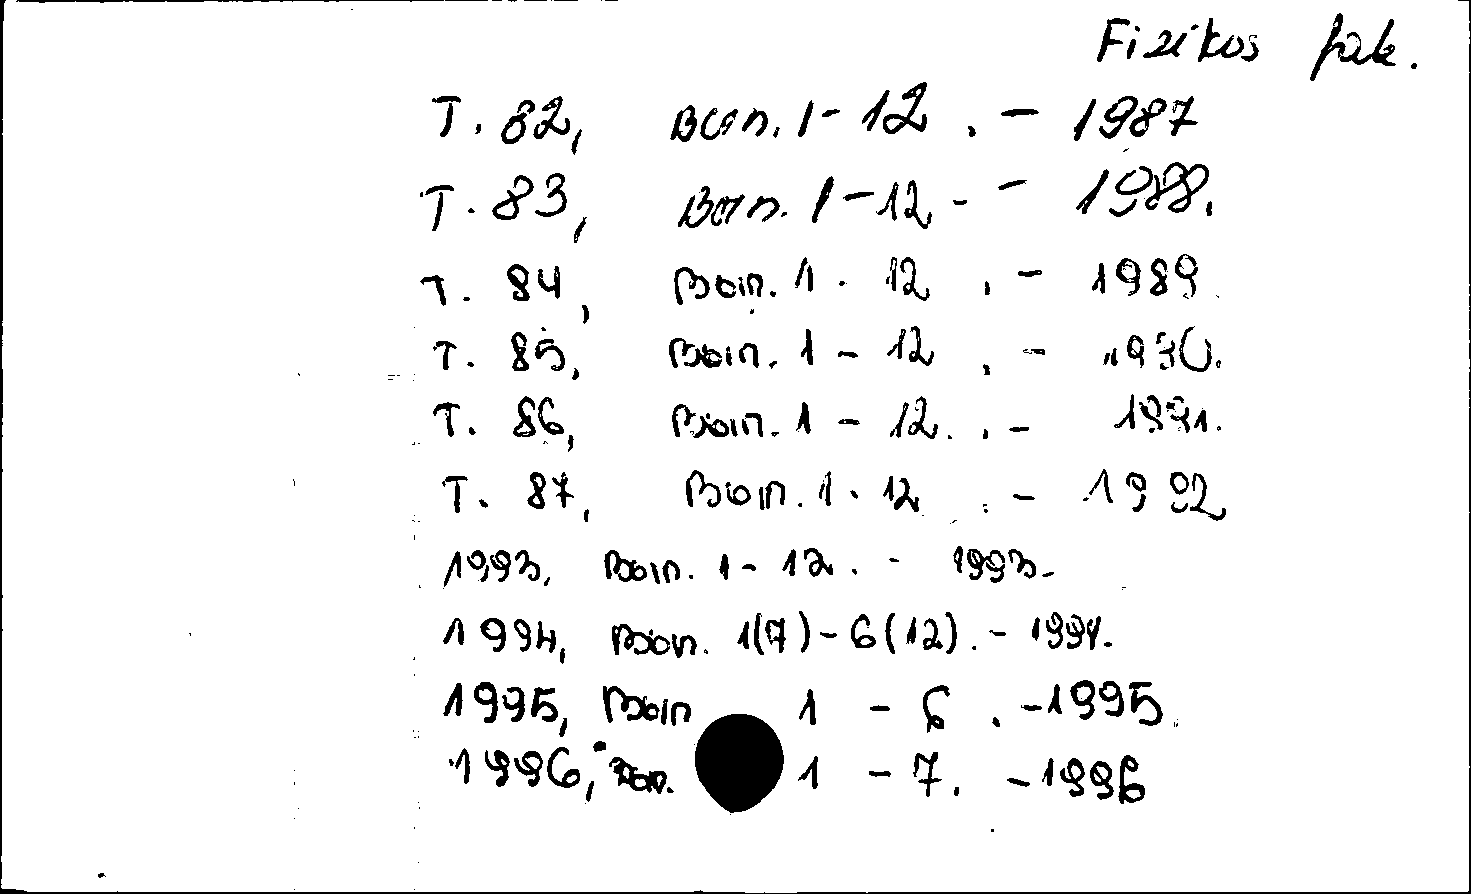 Fizikos fak.
T. 82, вып. 1-12. - 1987
T. 83, вып. 1-12. - 1988.
T. 84, вып. 1-12. - 1989
T. 85, вып. 1-12. - 1990.
T. 86, вып. 1-12. - 1991.
T. 87, вып. 1-12. - 1992
1993, вып. 1-12. - 1993.
1994, вып. 1(7)-6(12). - 1994.
1995, вып 1-6. - 1995.
1996, вып. 1-7. - 1996